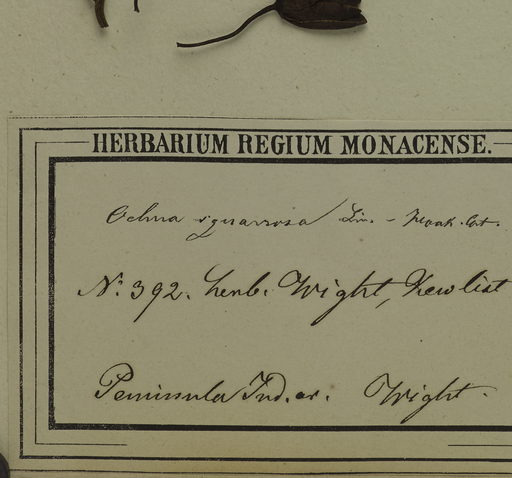 HERBARIUM REGIUM MONACENSE.
Ochna squarrosa Lin. -
No. 392. herb. Wight, Kew list
Peninsula Ind. or. Wight.